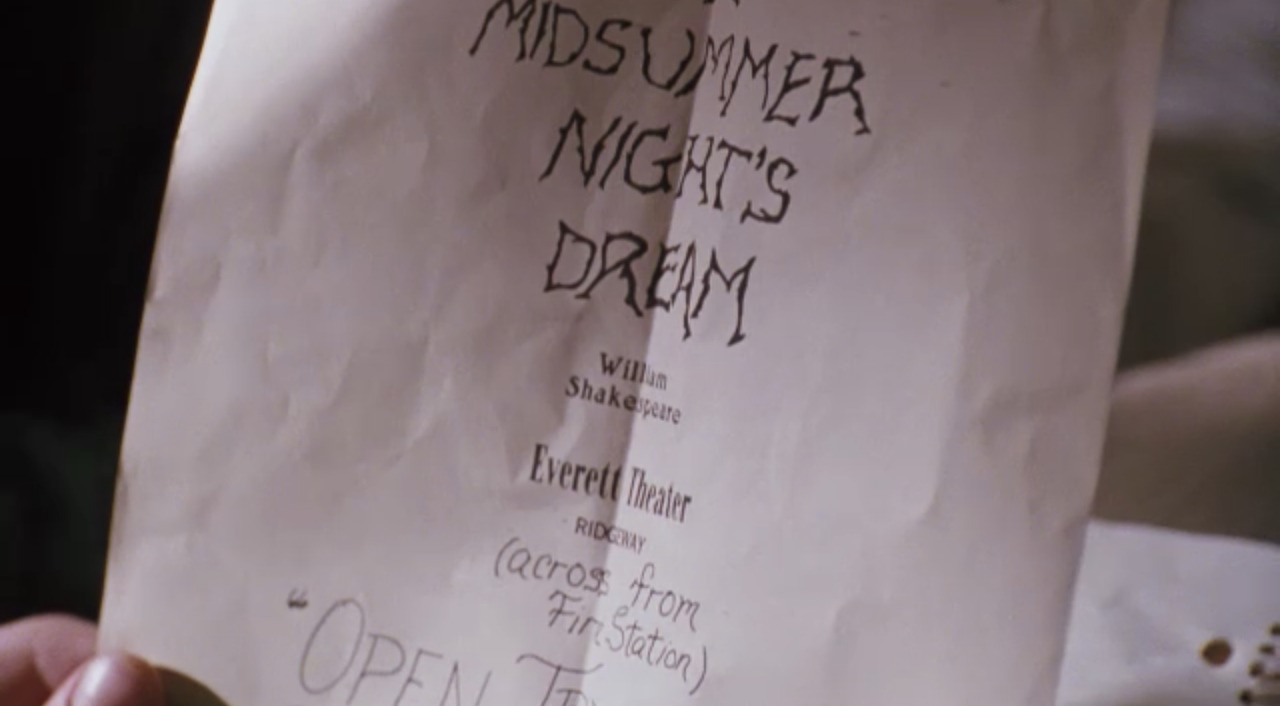 MIDSUMMER
NIGHT'S
DREAM
William
Shakespeare
Everett Theater
RIDGEWAY
(across from
Fire Station)
"OPEN